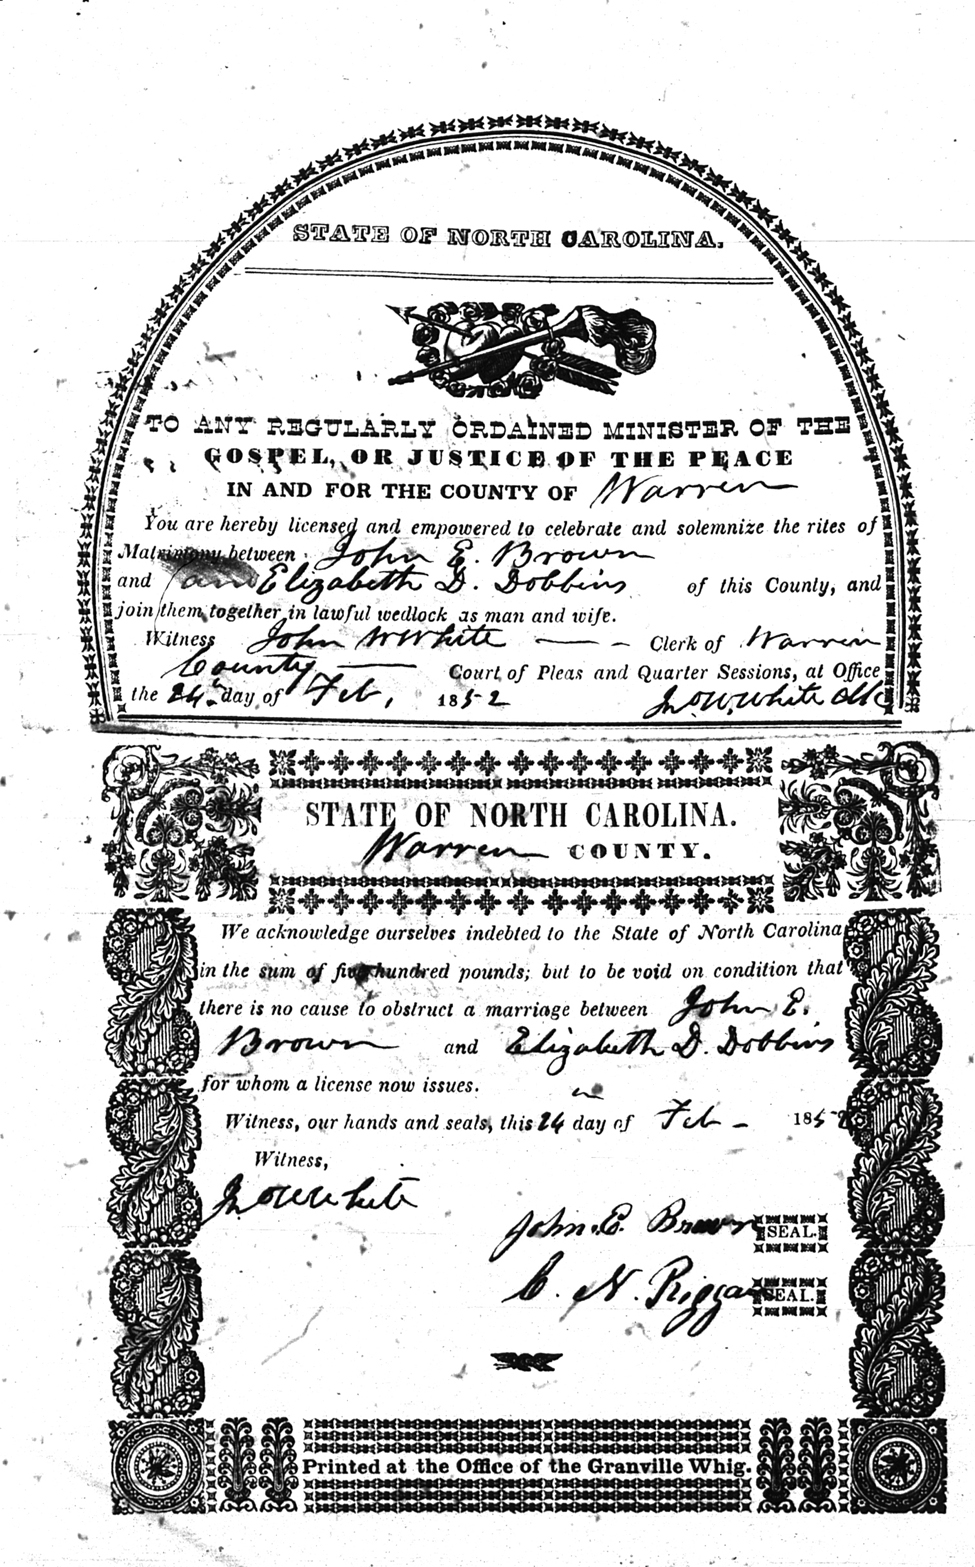 STATE OF NORTH CAROLINA.
TO ANY REGULARLY ORDAINED MINISTER OF THE
GOSPEL, OR JUSTICE OF THE PEACE
IN AND FOR THE COUNTY OF Warren
You are hereby licensed and empowered to celebrate and solemnize the rites of
Matrimony between John E. Brown
and Elizabeth D. Dobbins of this County, and
join them together in lawful wedlock as man and wife.
Witness John W White Clerk of Warren
County Court of Pleas and Quarter Sessions, at Office
the 24 day of Feb, 1852 Jno W. White Clk
STATE OF NORTH CAROLINA.
Warren COUNTY.
We acknowledge ourselves indebted to the State of North Carolina
in the sum of five hundred pounds; but to be void on condition that
there is no cause to obstruct a marriage between John E.
Brown and Elizabeth D. Dobbins
for whom a license now issues.
Witness, our hands and seals, this 24 day of Feb 1852
Witness,
Jno W White
John E Brown SEAL.
C. N. Riggan SEAL.
Printed at the Office of the Granville Whig.